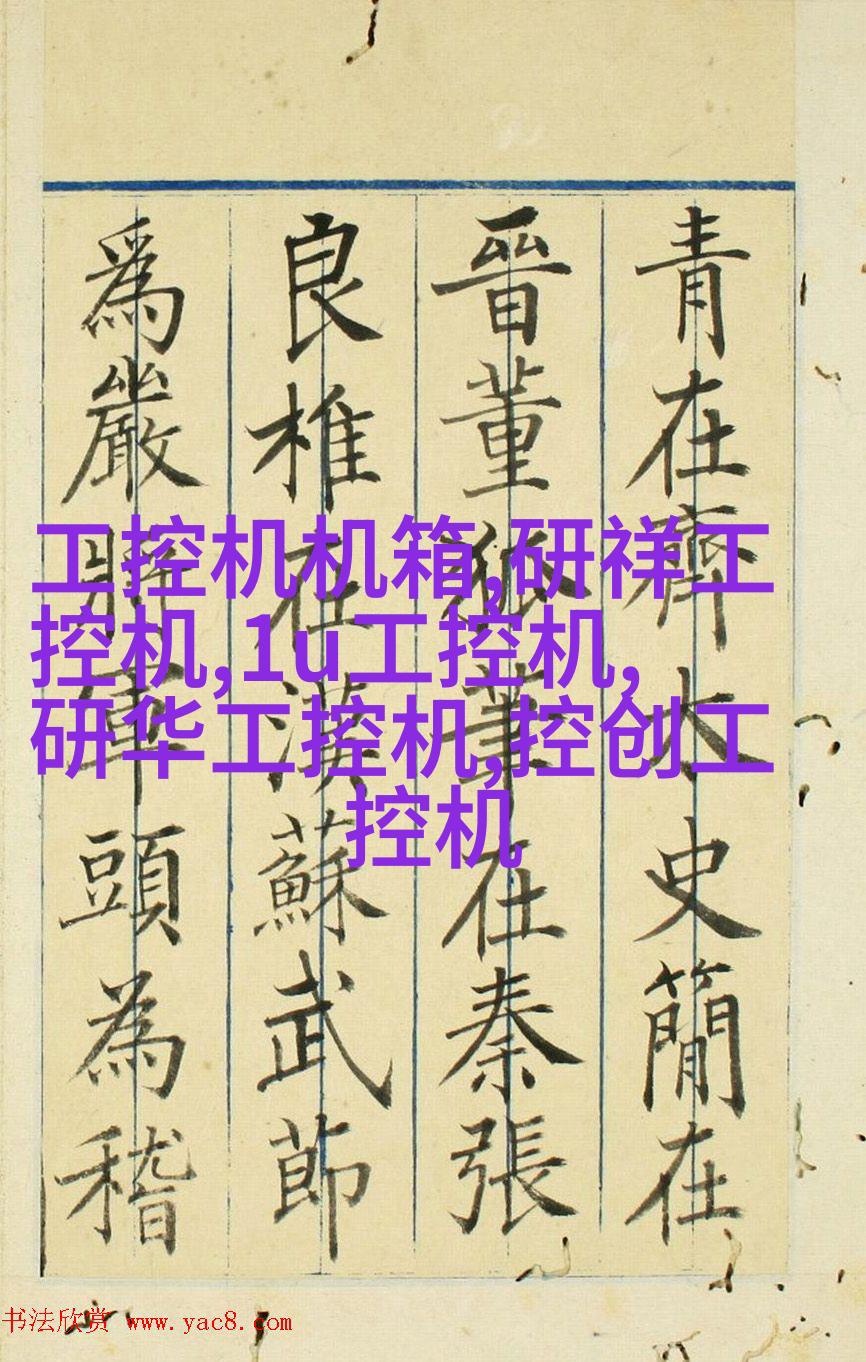 青在齊太史簡在
晉董狐筆在秦張
良椎在漢蘇武節
爲嚴將軍頭為稽
工控机机箱,研祥工
控机,1u工控机,
研华工控机,控创工
控机
书法欣赏 www.yac8.com